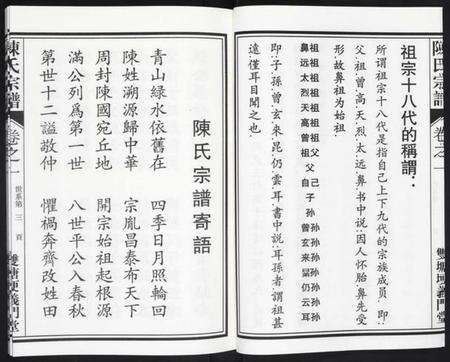 陳氏宗譜 卷之一
雙塘坪義門堂
祖宗十八代的稱謂：
所謂祖宗十八代是指自己上下九代的宗族成員，即：
父、祖、曾、高、天、烈、太、遠、鼻。書中説：因人怀胎，鼻先受
形，故鼻祖为始祖。
祖祖祖祖祖祖祖父己子孫孫孫孫孫孫孫孫
鼻远太烈天高曾祖父 自 子孫曾玄来晜仍云耳
即：子、孫、曾、玄、來、昆、仍、雲、耳。書中説：耳孫者，謂祖甚
遠，僅耳目聞之也。
陳氏宗譜寄語
青山綠水依舊在 四季日月照輪回
陳姓溯源歸中華 宗胤昌泰布天下
周封陳國宛丘地 開宗始祖起根源
滿公列爲第一世 八世平公入春秋
第世十二謚敬仲 懼禍奔齊改姓田
陳氏宗譜 卷之一
世系第三頁
義門堂